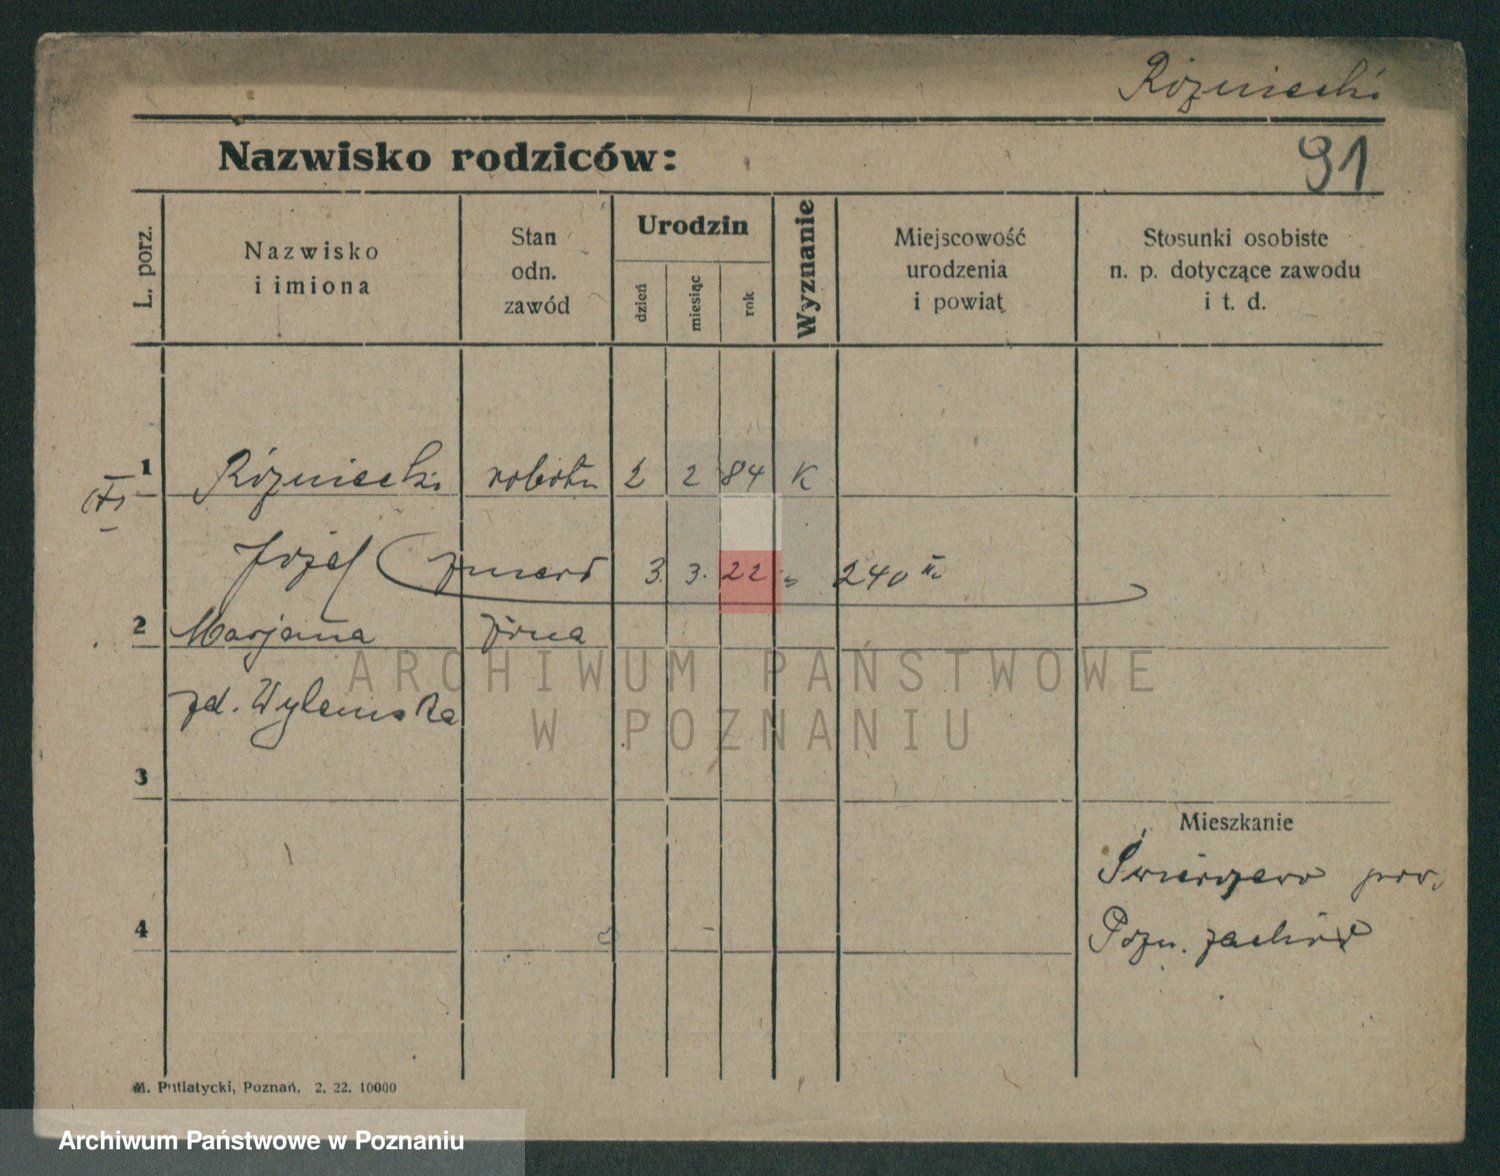 Różniecki
Nazwisko rodziców:
91
L. porz.
Nazwisko
i imiona
Stan
odn.
zawód
Urodzin
dzień
miesiąc
rok
Wyznanie
Miejscowość
urodzenia
i powiat
Stosunki osobiste
n. p. dotyczące zawodu
i t. d.
1 Różniecki robotn 2 2 84 K
Józef zmarł 3. 3. 22 240
2 Marjanna żona
zd.
3
Mieszkanie
Świerczewo pow.
4
Pozn. zachód
ARCHIWUM PAŃSTWOWE
W POZNANIU
M. Putiatycki, Poznań. 2. 22. 10000
Archiwum Państwowe w Poznaniu